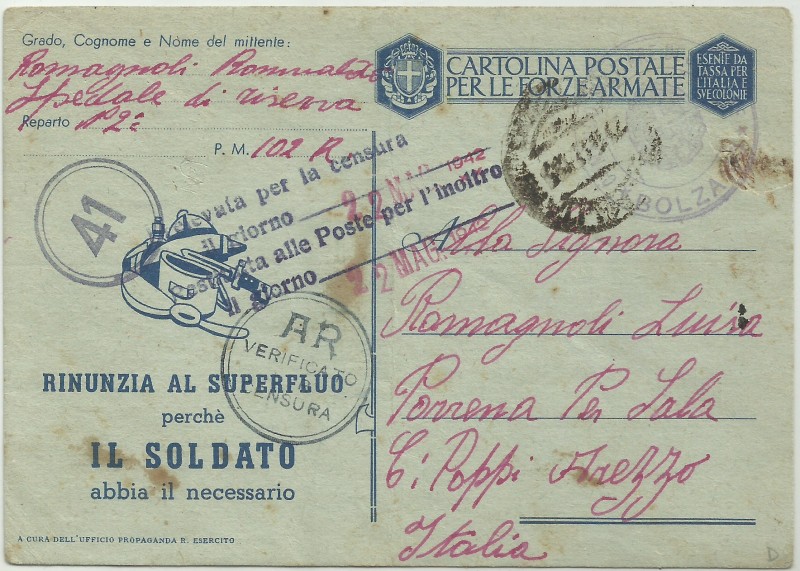 Grado, Cognome e Nome del mittente:
Romagnoli Romualdo
Spedale di riserva
Reparto Nº2º
P. M. 102 R.
CARTOLINA POSTALE
PER LE FORZE ARMATE
ESENTE DA
TASSA PER
L'ITALIA E
SVE COLONIE
BOLZA
41
per la censura
il giorno 22 MAG. 1942
alle Poste per l'inoltro
il giorno 22 MAG. 1942
AR
VERIFICATO
CENSURA
RINUNZIA AL SUPERFLUO
perchè
IL SOLDATO
abbia il necessario
A CURA DELL'UFFICIO PROPAGANDA R. ESERCITO
Alla Signora
Romagnoli Luisa
Porrena Per Lala
C: Poppi Arezzo
Italia
D